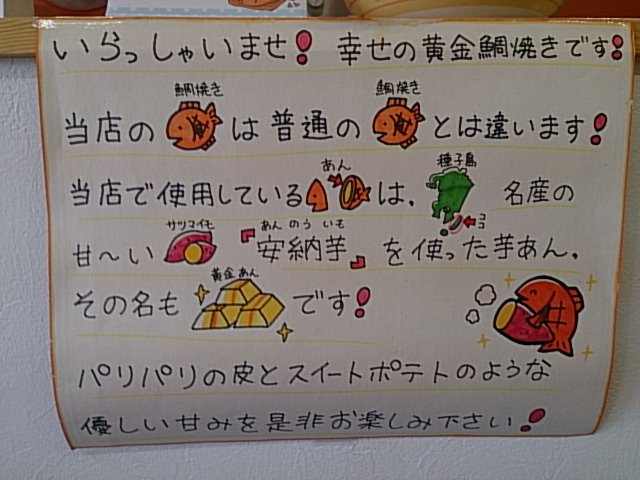 いらっしゃいませ! 幸せの黄金鯛焼きです!
鯛焼き 鯛焼き
当店の は普通の とは違います!
あん 種子島
当店で使用している は、 名産の
ココ
サツマイモ あんのういも
甘～い 『安納芋』を使った芋あん。
黄金あん
その名も です!
パリパリの皮とスイートポテトのような
優しい甘みを是非お楽しみ下さい!